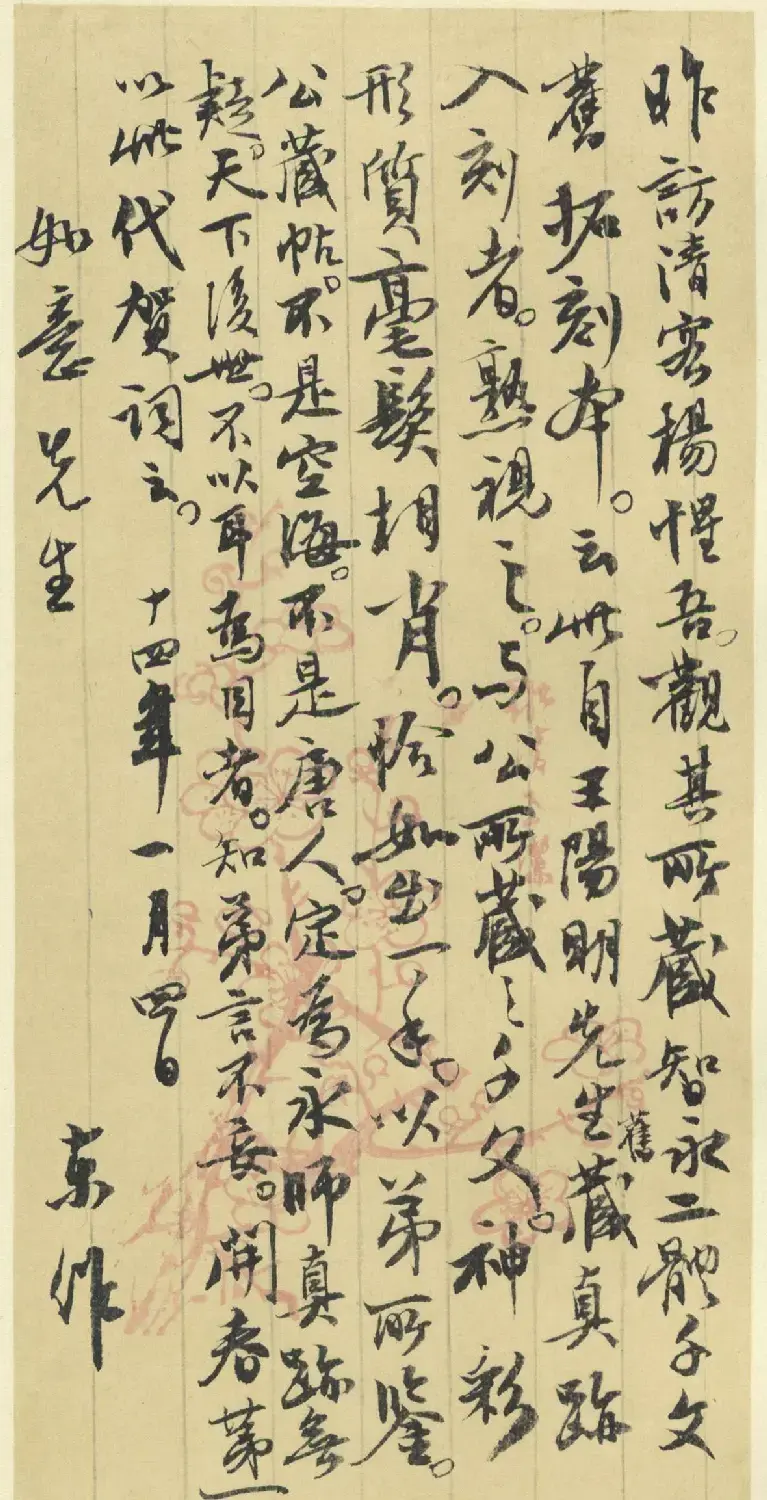 昨訪清客楊惺吾。觀其所藏智永二體千文
舊拓刻本。云此自王陽明先生舊藏真跡
入刻者。熟視之。与公所藏之千文。神彩
形質毫髮相肖。恰如出一手。以弟所鑒。
公藏帖。不是空海。不是唐人。定為永師真跡無
疑。天下後世。不以耳為目者。知弟言不妄。開春第一
以此代賀詞云。十四年一月四日 東作
如意先生